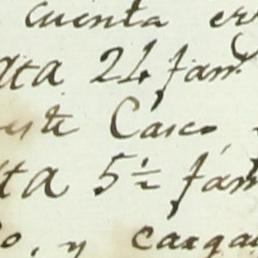 cuenta en
ata 24 fan
este Casco,
ta 5½ fan
o, y carga